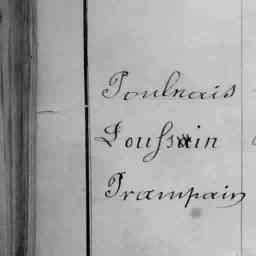 Toulnais
Toussain
Trampain